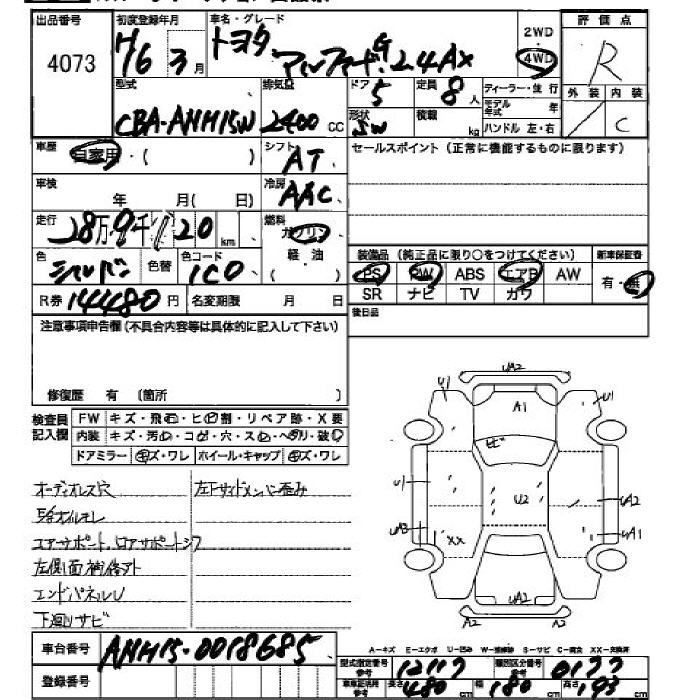 出品番号 初度登録年月 車名・グレード 2WD 評価点
4073 H16 3月 トヨタ アルファード G 2.4AX 4WD R
型式 排気量 ドア 5 定員 8人 ディーラー・並行 外装 内装
CBA-ANH15W 2400cc 形状 SW 積載 kg モデル年式 年 C
ハンドル 左・右
車歴 自家用・( ) シフト AT セールスポイント(正常に機能するものに限ります)
車検 年 月( 日) 冷房 AAC
走行 28万9千120km 燃料 ガソリン
軽・油
色 シルバー 色替 色コード 1C0 装備品(純正品に限り○をつけてください) 新車保証書
PS PW ABS エアB AW 有・無
R券 14480円 名変期限 月 日 SR ナビ TV カワ
注意事項申告欄(不具合内容等は具体的に記入して下さい) 後日品
修復歴 有 (箇所 )
検査員記入欄 FW キズ・飛石・ヒビ割・リペア跡・X要
内装 キズ・汚れ・コゲ・穴・スレ・ヘタリ・破れ
ドアミラー キズ・ワレ ホイール・キャップ キズ・ワレ
オーディオレス穴 左F サイドメンバー歪み
エアーサポート、ロアサポートシワ
左側面補修アト
エンドパネルU
下廻りサビ
UA2
U1 A1 U1
ヒビ
U1 U2 UA2
UA3 XX UA1
UA2
A2 A2
車台番号 ANH15-0018685
登録番号
A-キズ E-エクボ U-凹み W-補修跡 S-サビ C-腐食 XX-交換済
型式指定番号 参考 12117 類別区分番号 参考 0177
車車証明用 参考 長さ 480cm 幅 180cm 高さ 193cm